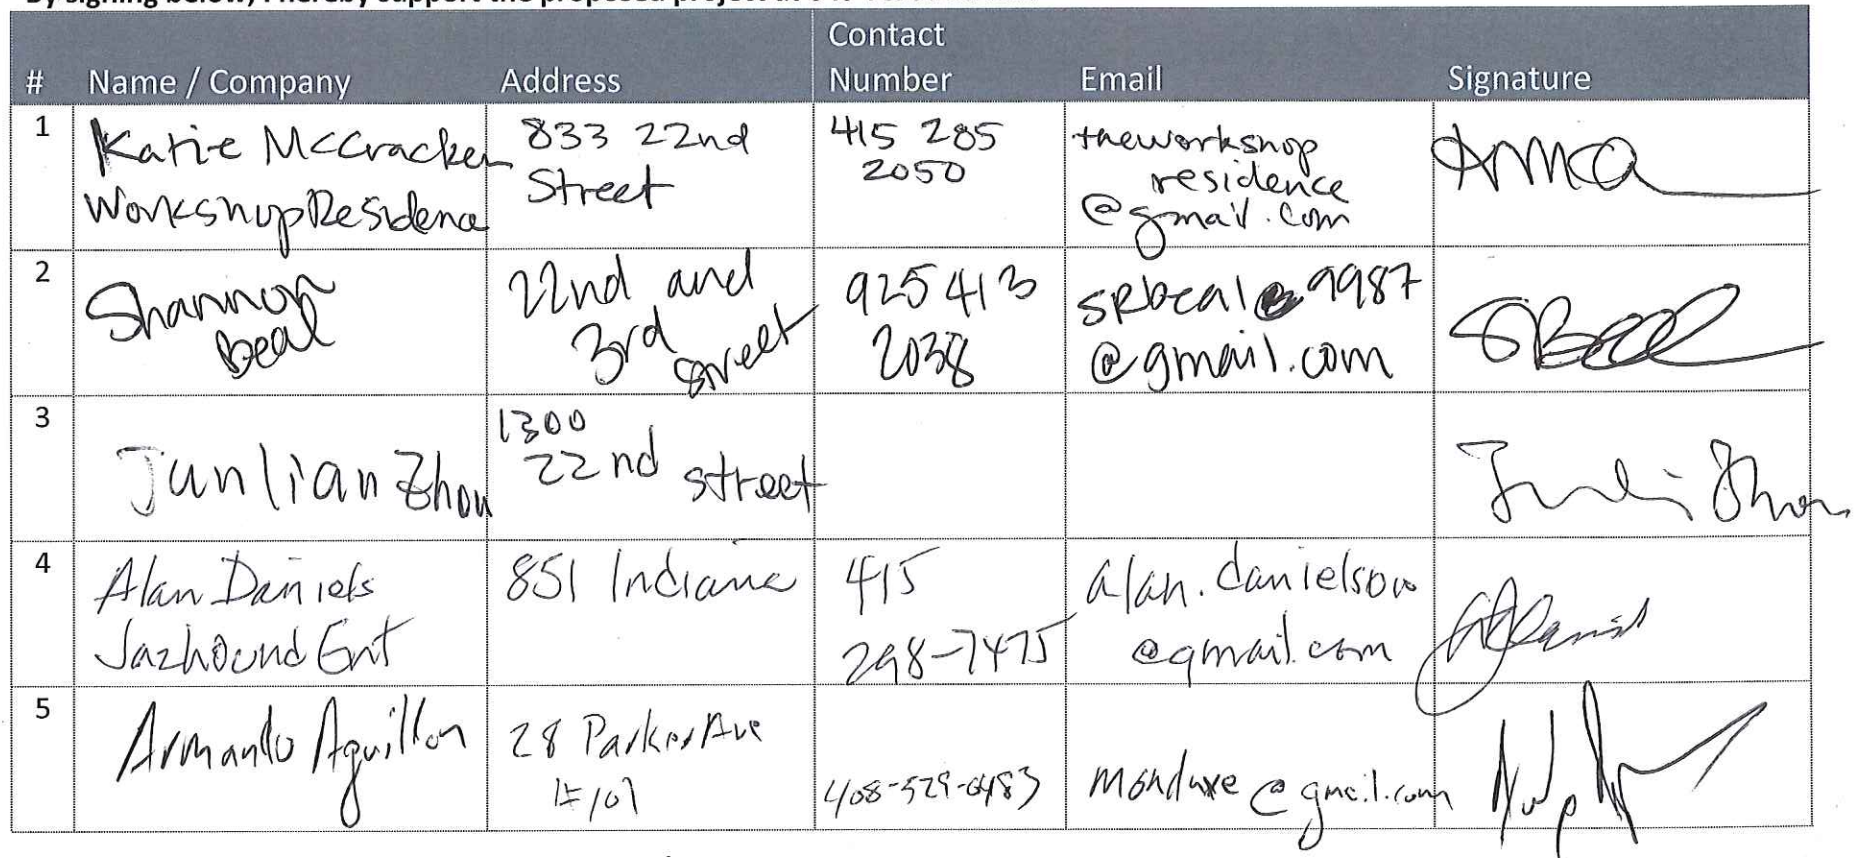 By signing below, I hereby support the proposed project at
Contact
# Name / Company Address Number Email Signature
1
Katie McCracken
WorkshopResidence
833 22nd
Street
415 285
2050
theworkshop
residence
@gmail.com
2
Shannon
Beal
22nd and
3rd
street
925 413
2038
SRbeal 9987
@gmail.com
SBeal
3
Junlian Zhou
1300
22nd street
4
Alan Daniels
Jazhound Ent
851 Indiana
415
298-7475
alan.danielson
@gmail.com
5
Armando Aguillon
28 Parker Ave
#101
408-529-0483
@gmail.com